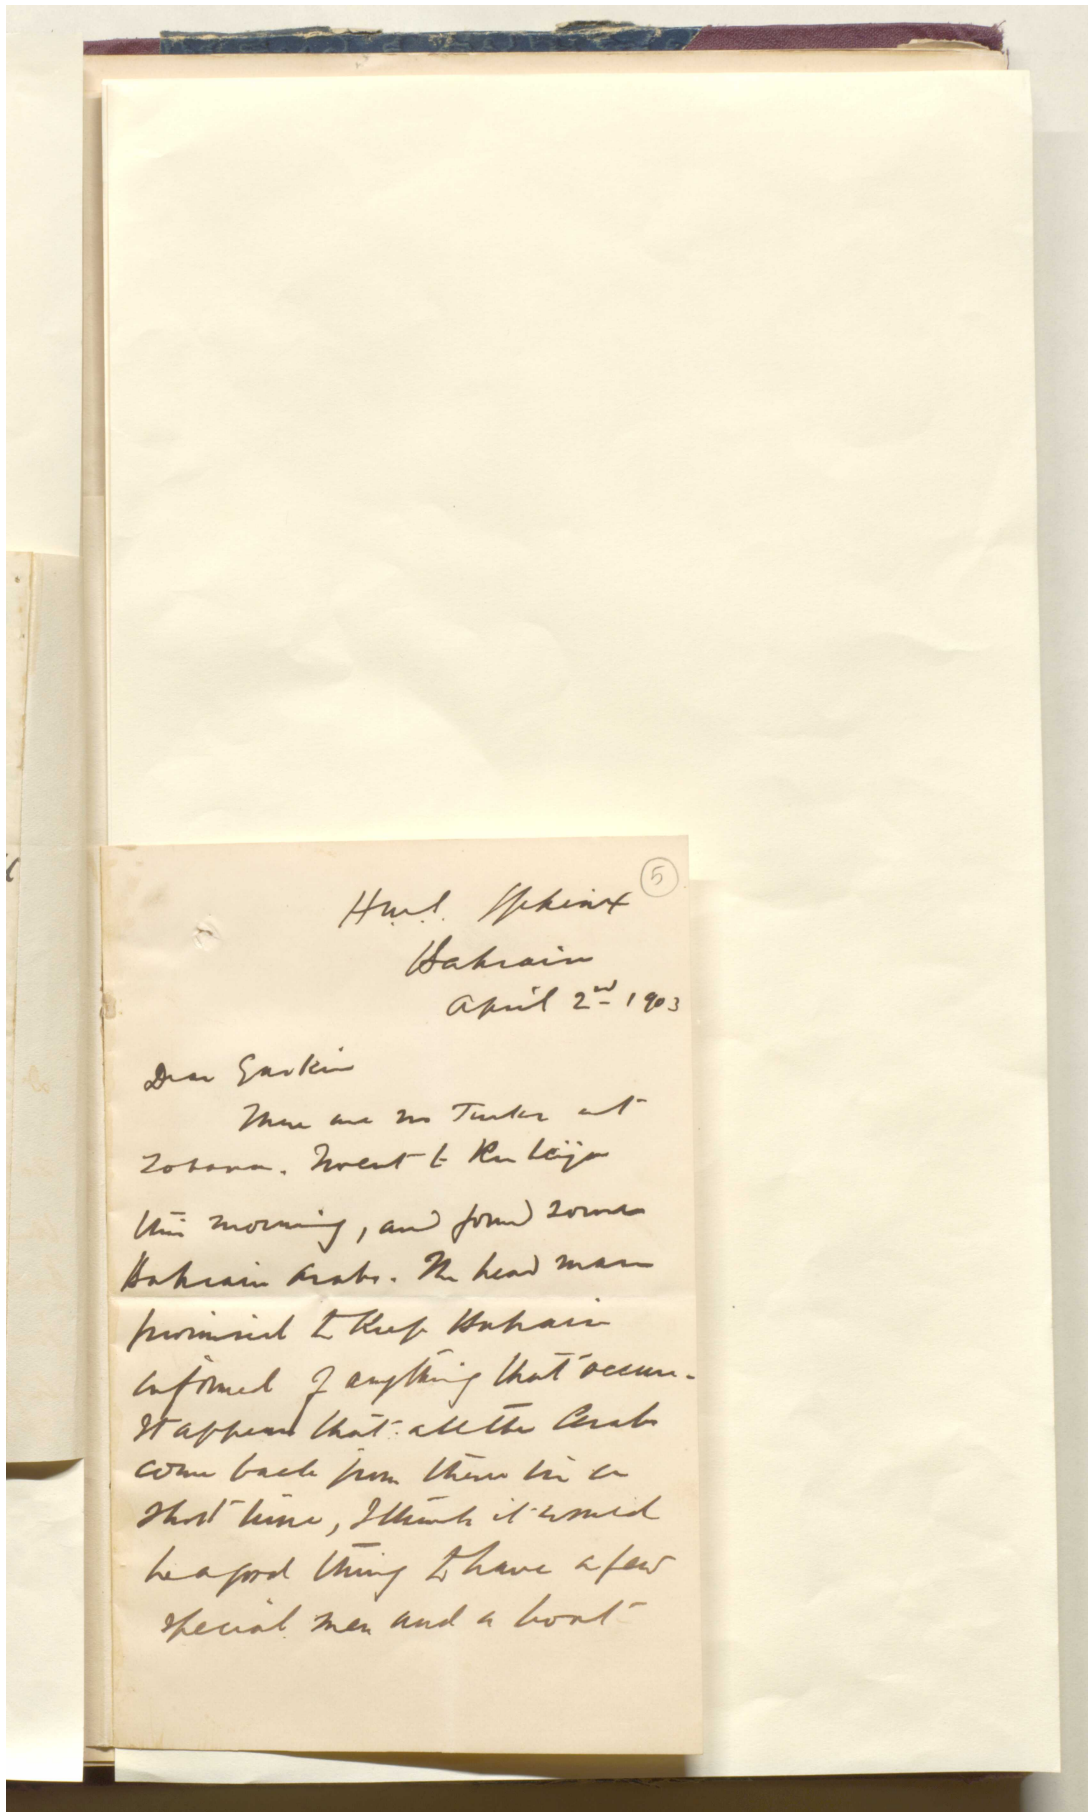 5
H.M.S. Sphinx
Bahrain
April 2nd 1903
Dear Gaskin
There are no Turks at
Zobara. I went to
this morning, and found some
Bahrain Arabs. The head man
promised to keep Bahrain
informed of anything that occurs.
It appears that all the Arabs
come back from there in a
short time, I think it would
be a good thing to have a few
special men and a boat